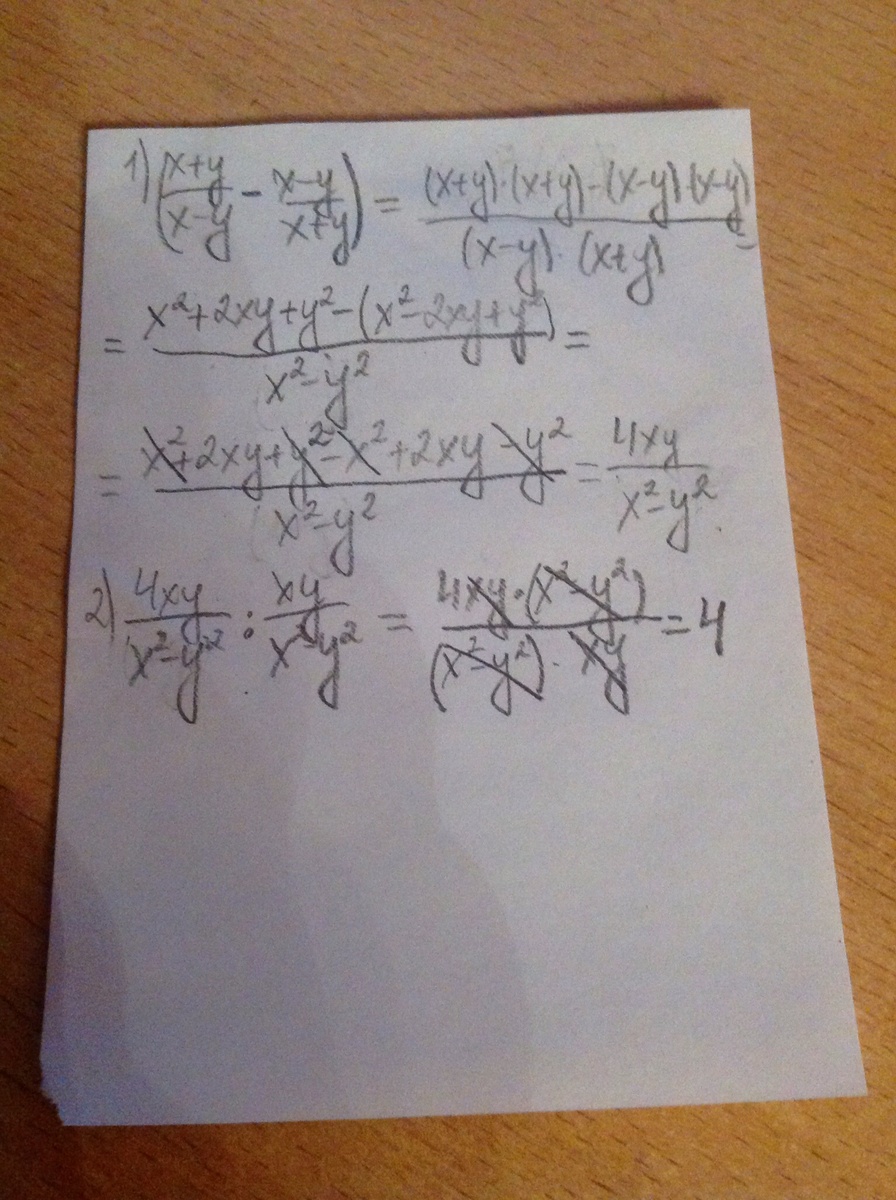 1) (x+y/x-y - x-y/x+y) = (x+y)·(x+y)-(x-y)·(x-y)/(x-y)·(x+y) =
= x²+2xy+y²-(x²-2xy+y²)/x²-y² =
= x²+2xy+y²-x²+2xy-y²/x²-y² = 4xy/x²-y².
2) 4xy/x²-y² : xy/x²-y² = 4xy·(x²-y²)/(x²-y²)·xy = 4